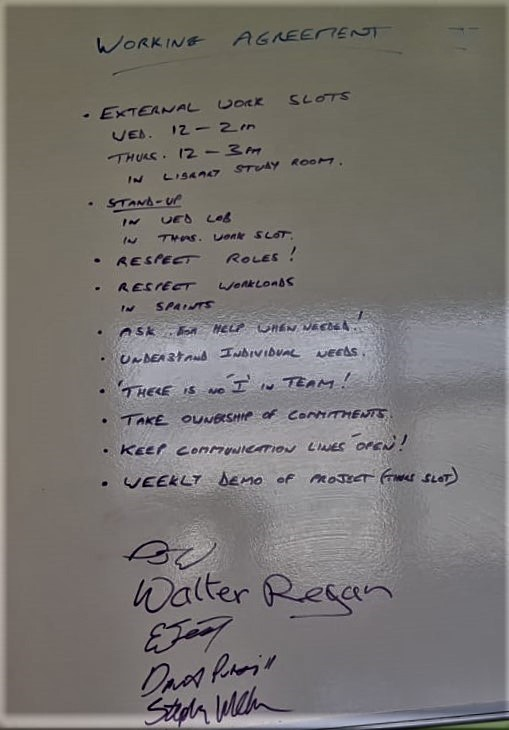 WORKING AGREEMENT
• EXTERNAL WORK SLOTS
WED. 12 – 2PM
THURS. 12 – 3PM
IN LIBRARY STUDY ROOM.
• STAND-UP
IN WED LAB
IN THURS. WORK SLOT.
• RESPECT ROLES!
• RESPECT WORKLOADS
IN SPRINTS
• ASK FOR HELP WHEN NEEDED!
• UNDERSTAND INDIVIDUAL NEEDS.
• 'THERE IS NO 'I' IN TEAM!
• TAKE OWNERSHIP OF COMMITMENTS.
• KEEP COMMUNICATION LINES 'OPEN'!
• WEEKLY DEMO OF PROJECT (THURS SLOT)
Walter Regan
David